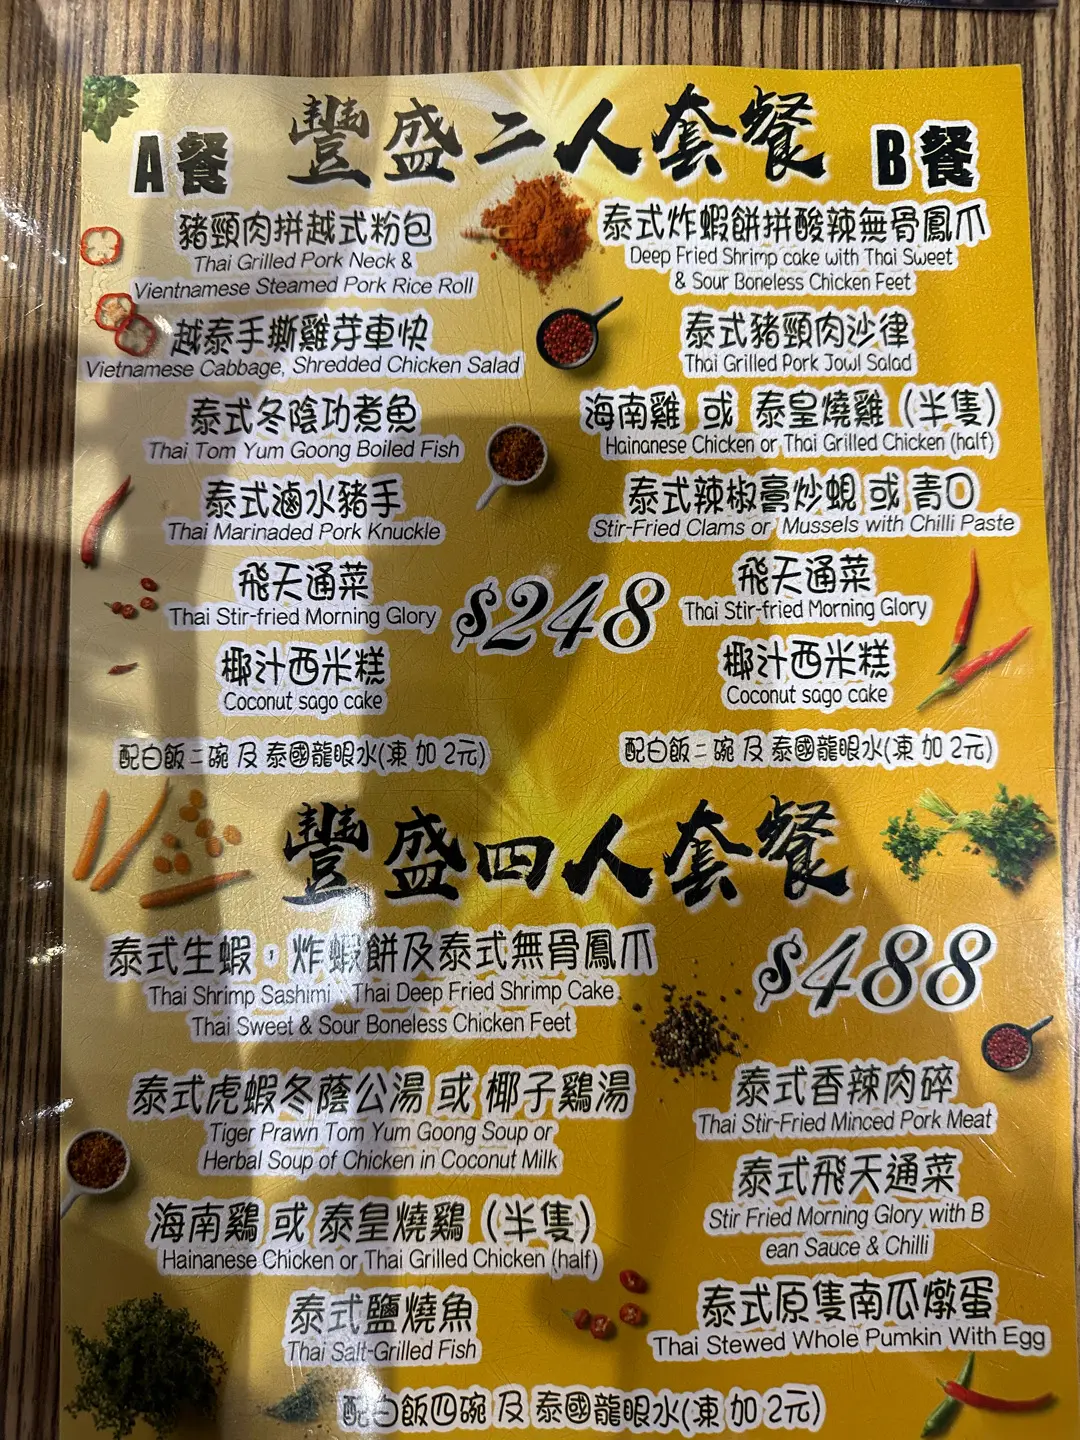 豐盛二人套餐
A餐
豬頸肉拼越式粉包
Thai Grilled Pork Neck &
Vientnamese Steamed Pork Rice Roll
越泰手撕雞芽車快
Vietnamese Cabbage, Shredded Chicken Salad
泰式冬陰功煮魚
Thai Tom Yum Goong Boiled Fish
泰式滷水豬手
Thai Marinaded Pork Knuckle
飛天通菜
Thai Stir-fried Morning Glory
椰汁西米糕
Coconut sago cake
配白飯二碗 及 泰國龍眼水(凍 加 2元)
$248
B餐
泰式炸蝦餅拼酸辣無骨鳳爪
Deep Fried Shrimp cake with Thai Sweet
& Sour Boneless Chicken Feet
泰式豬頸肉沙律
Thai Grilled Pork Jowl Salad
海南雞 或 泰皇燒雞（半隻）
Hainanese Chicken or Thai Grilled Chicken (half)
泰式辣椒膏炒蜆 或 青口
Stir-Fried Clams or Mussels with Chilli Paste
飛天通菜
Thai Stir-fried Morning Glory
椰汁西米糕
Coconut sago cake
配白飯二碗 及 泰國龍眼水(凍 加 2元)
豐盛四人套餐
$488
泰式生蝦，炸蝦餅及泰式無骨鳳爪
Thai Shrimp Sashimi、Thai Deep Fried Shrimp Cake
Thai Sweet & Sour Boneless Chicken Feet
泰式虎蝦冬蔭公湯 或 椰子鷄湯
Tiger Prawn Tom Yum Goong Soup or
Herbal Soup of Chicken in Coconut Milk
海南鷄 或 泰皇燒鷄（半隻）
Hainanese Chicken or Thai Grilled Chicken (half)
泰式鹽燒魚
Thai Salt-Grilled Fish
泰式香辣肉碎
Thai Stir-Fried Minced Pork Meat
泰式飛天通菜
Stir Fried Morning Glory with B
ean Sauce & Chilli
泰式原隻南瓜燉蛋
Thai Stewed Whole Pumkin With Egg
配白飯四碗 及 泰國龍眼水(凍 加 2元)